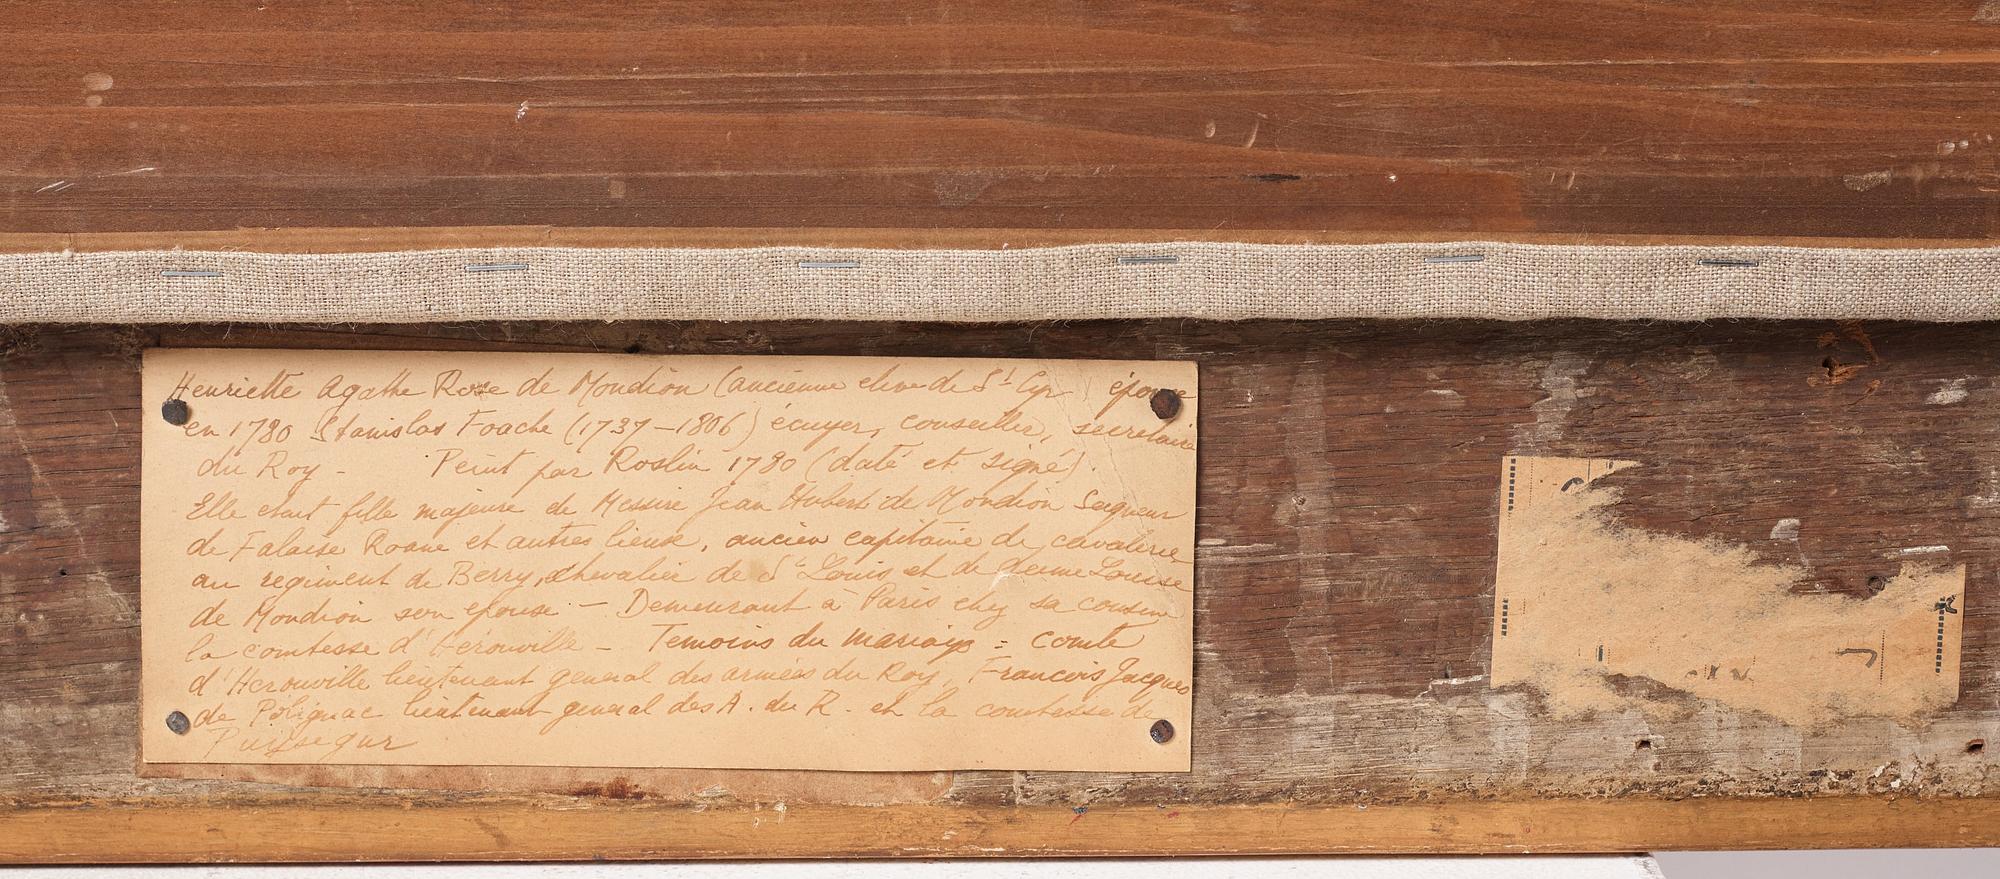 Henriette Agathe Rose de Mondion (ancienne eleve de St Cyr épouse
en 1780 Stanislas Foache (1737-1806) écuyer, conseiller, secretaire
du Roy - Peint par Roslin 1780 (daté et signé).
Elle etait fille majeure de Messire Jean Hubert de Mondion Seigneur
de Falaise Roane et autres lieux, ancien capitaine de cavalerie
au regiment de Berry, chevalier de St Louis et de Louise
de Mondion son epouse - Demeurant à Paris chez sa cousine
la comtesse d'Herouville - Temoins du mariage = comte
d'Herouville lieutenant general des armées du Roy, Francois Jacques
de Polignac lieutenant general des A. du R. et la comtesse de
Puysegur